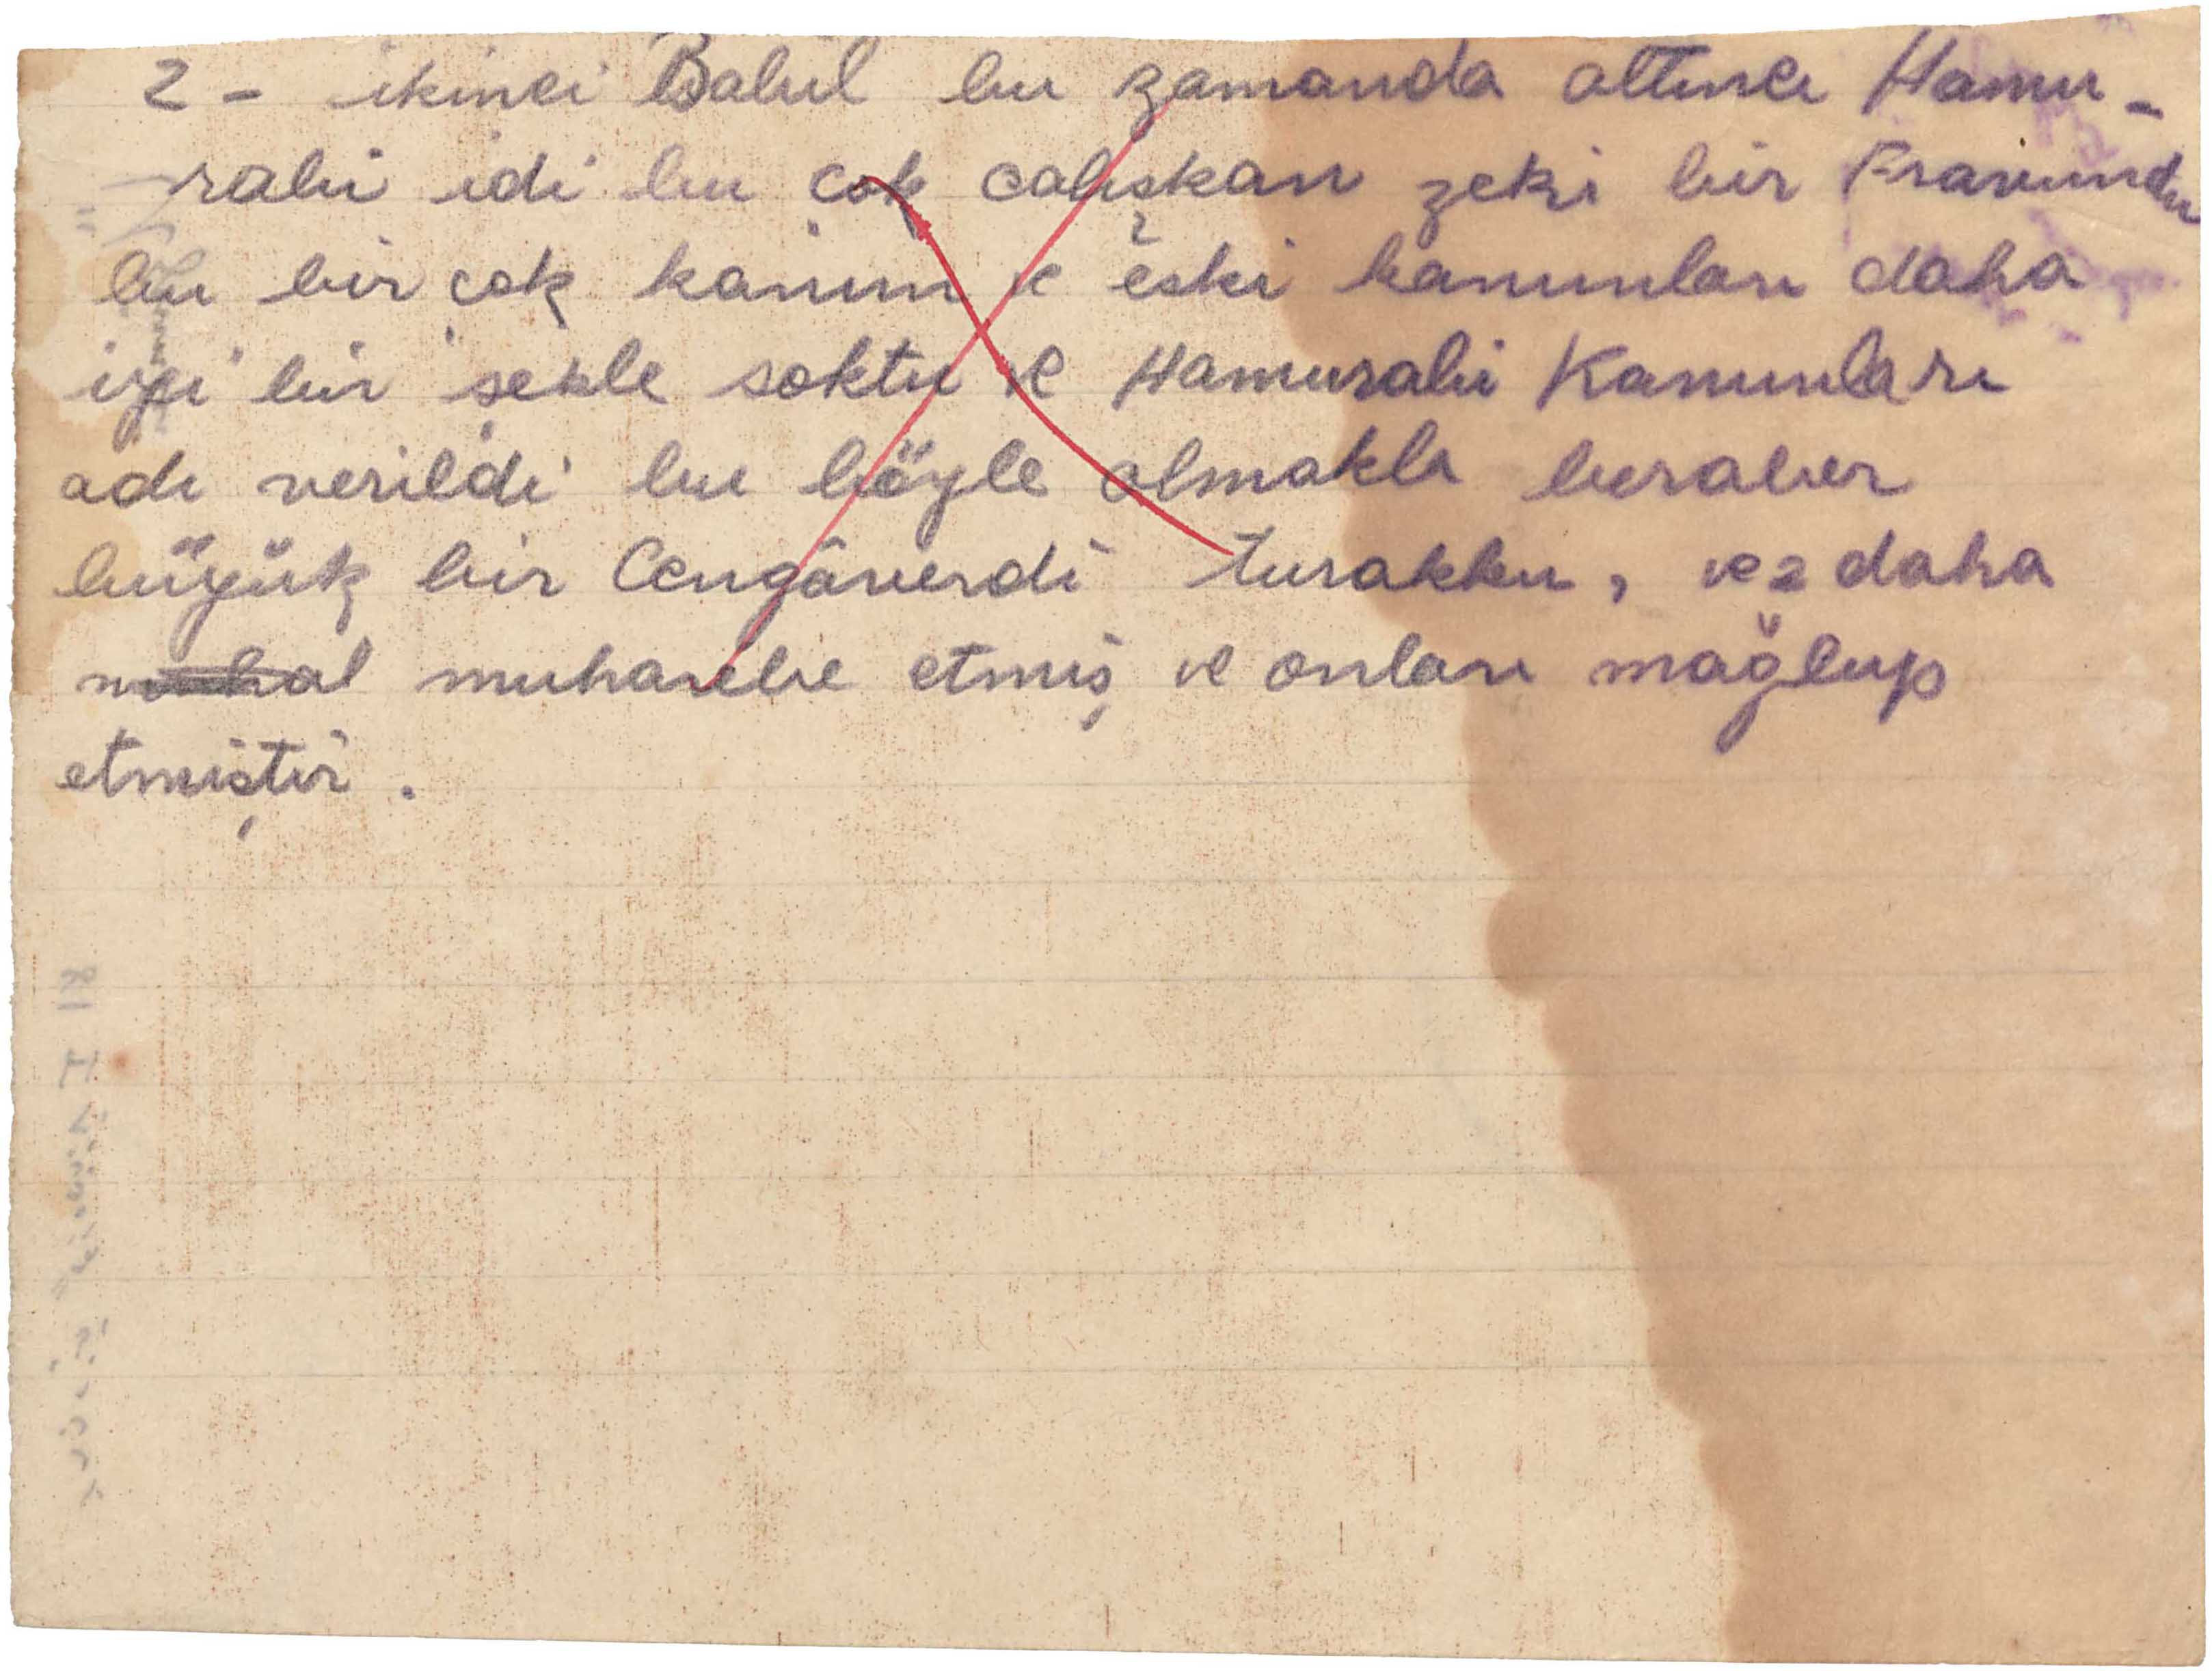 2 - ikinci Babil bu zamanda altıncı Hamu-
rabi idi bu çok calışkan zeki bir Fravundu
bu bir çok kanun ve eski kanunları daha
iyi bir şekle soktu ve Hamurabi Kanunları
adı verildi bu böyle olmakla beraber
büyük bir Cengâverdi Turakku, ve 2 daha
muharebe etmiş ve onları mağlup
etmiştir.